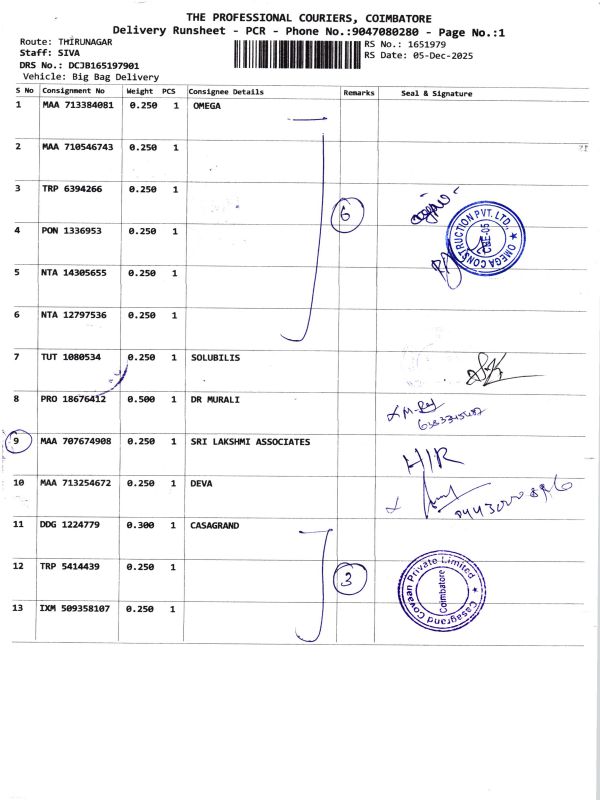 THE PROFESSIONAL COURIERS, COIMBATORE
Delivery Runsheet - PCR - Phone No.:9047080280 - Page No.:1
Route: THIRUNAGAR
Staff: SIVA
DRS No.: DCJB165197901
Vehicle: Big Bag Delivery
RS No.: 1651979
RS Date: 05-Dec-2025
S No Consignment No Weight PCS Consignee Details Remarks Seal & Signature
1 MAA 713384081 0.250 1 OMEGA
2 MAA 710546743 0.250 1
3 TRP 6394266 0.250 1
6
4 PON 1336953 0.250 1
OMEGA CONSTRUCTION PVT. LTD., ★
CBE-05
5 NTA 14305655 0.250 1
6 NTA 12797536 0.250 1
7 TUT 1080534 0.250 1 SOLUBILIS
8 PRO 18676412 0.500 1 DR MURALI
9 MAA 707674908 0.250 1 SRI LAKSHMI ASSOCIATES
H/R
10 MAA 713254672 0.250 1 DEVA
11 DDG 1224779 0.300 1 CASAGRAND
12 TRP 5414439 0.250 1
3
Casagrand Coveen Private Limited ★
Coimbatore
13 IXM 509358107 0.250 1